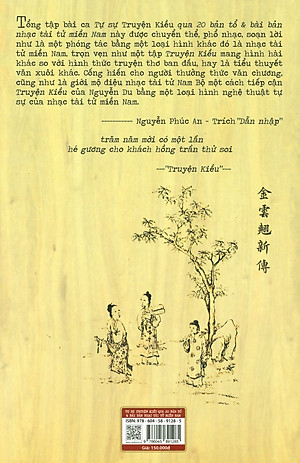 Tổng tập bài ca Tự sự Truyện Kiều qua 20 bản tổ & bài bản
nhạc tài tử miền Nam này được chuyển thể, phổ nhạc, soạn lời
như là một phóng tác bằng một loại hình khác đó là nhạc tài
tử miền Nam, trọn vẹn như một tập Truyện Kiều mang hình hài
khác so với hình thức truyện thơ ban đầu, hay là tiểu thuyết
văn xuôi khác. Cống hiến cho người thưởng thức văn chương,
cũng như là giới mộ điệu nhạc tài tử Nam Bộ một cách tiếp cận
Truyện Kiều của Nguyễn Du bằng một loại hình nghệ thuật tự
sự của nhạc tài tử miền Nam.
----------- Nguyễn Phúc An - Trích "Dẫn nhập"
trăm năm mới có một lần
hé gương cho khách hồng trần thử soi
---"Truyện Kiều"---
金雲翹新傳
TỰ SỰ TRUYỆN KIỀU QUA 20 BẢN TỔ
& BÀI BẢN NHẠC TÀI TỬ MIỀN NAM
ISBN: 978 - 604 - 58 - 9128 - 5
Giá: 150.000đ